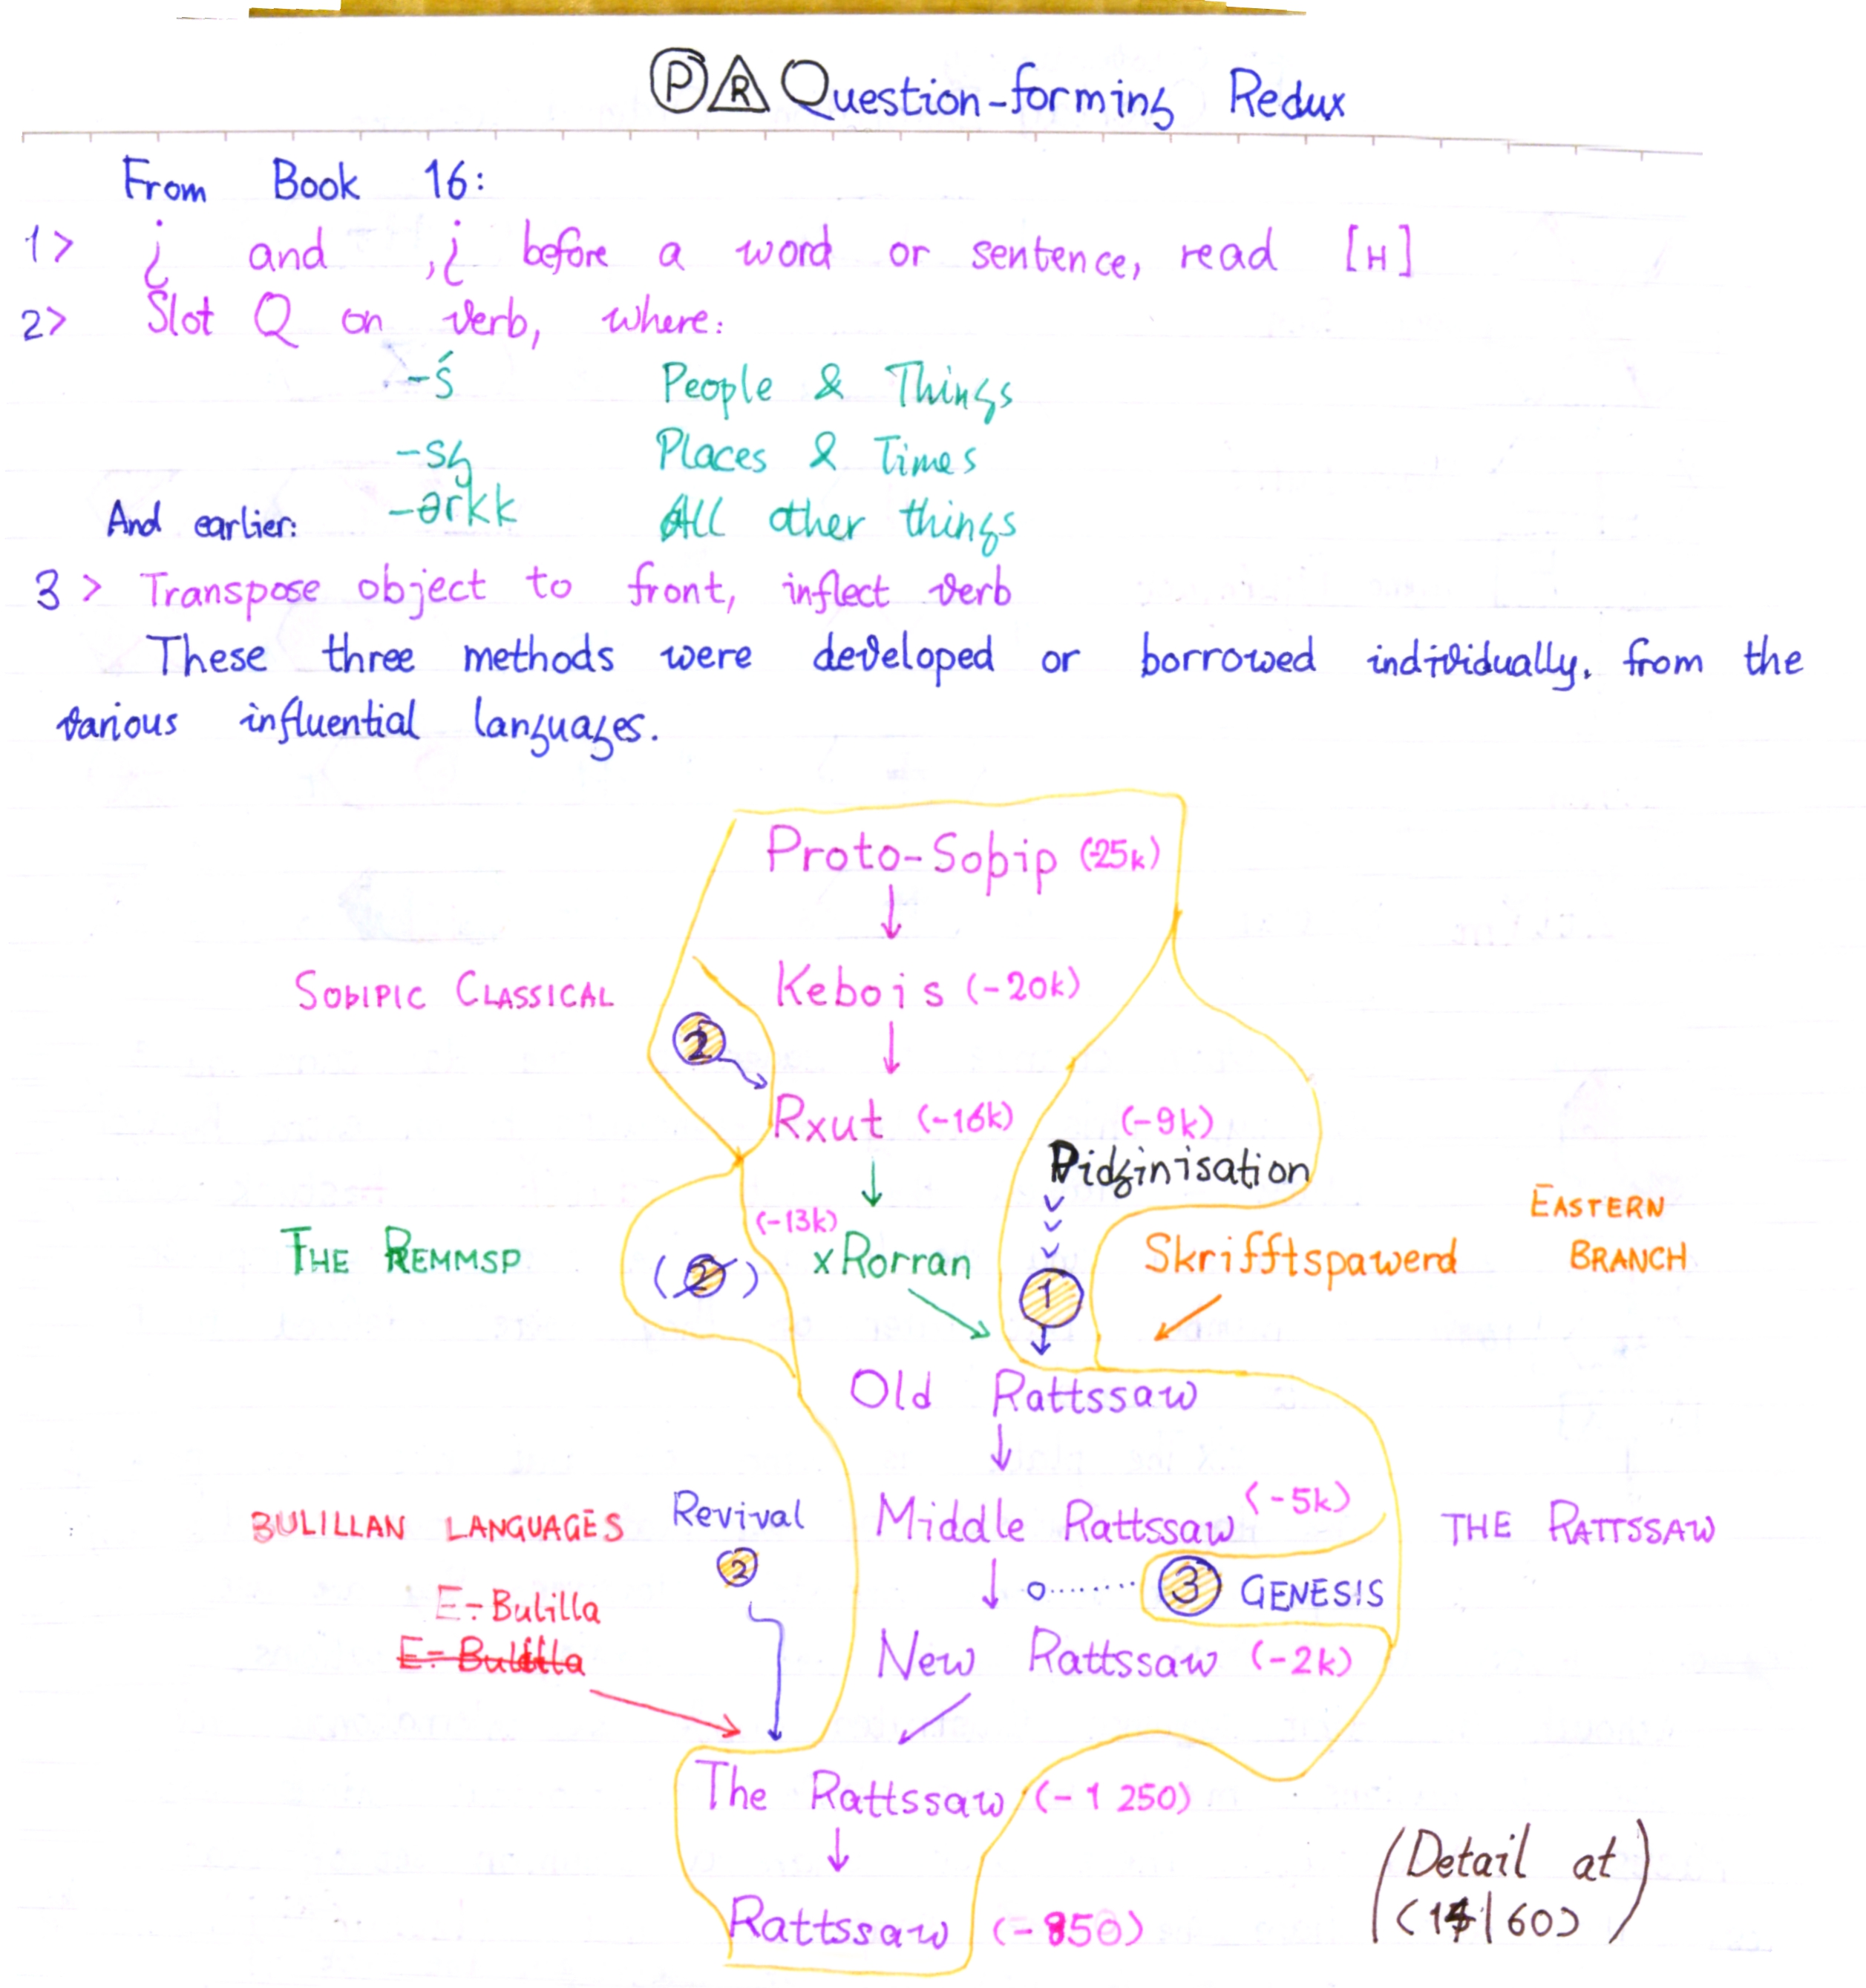 Ⓟ R Question-forming Redux
From Book 16:
1> ¿ and ,¿ before a word or sentence, read [H]
2> Slot Q on verb, where:
-ś People & Things
-sŋ Places & Times
And earlier: -ərkk All other things
3 > Transpose object to front, inflect verb
These three methods were developed or borrowed individually, from the
various influential languages.
Proto-Soþip (-25k)
SOÞIPIC CLASSICAL Kebois (-20k)
2
Rxut (-16k) (-9k)
Pidginisation
(-13k) EASTERN
THE REMMSP (2) xRorran 1 Skrifftspawerd BRANCH
Old Rattssaw
BULILLAN LANGUAGES Revival Middle Rattssaw (-5k) THE RATTSSAW
2 3 GENESIS
E-Bulilla
E-Bulilla New Rattssaw (-2k)
The Rattssaw (-1 250)
(Detail at
Rattssaw (-850) <14|60>)